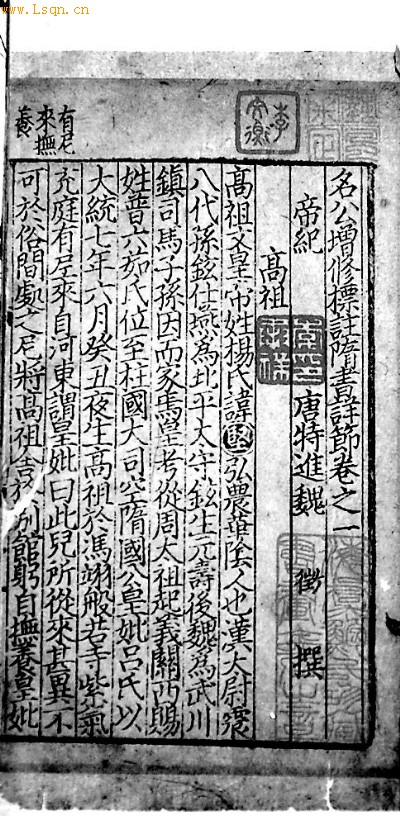 www.Lsqn.cn
名公增修標註隋書詳節卷之一
帝紀 唐特進魏 徵 撰
高祖
高祖文皇帝姓楊氏諱堅弘農華陰人也漢大尉震
八代孫鉉仕燕爲北平大守鉉生元壽後魏爲武川
鎮司馬子孫因而家焉皇考從周太祖起義關西賜
姓普六茹氏位至柱國大司空隋國公皇妣呂氏以
大統七年六月癸丑夜生高祖於馮翊般若寺紫氣
充庭有尼來自河東謂皇妣曰此兒所從來甚異不
可於俗間處之尼將高祖舍於別館躬自撫養皇妣
有尼
來撫
養